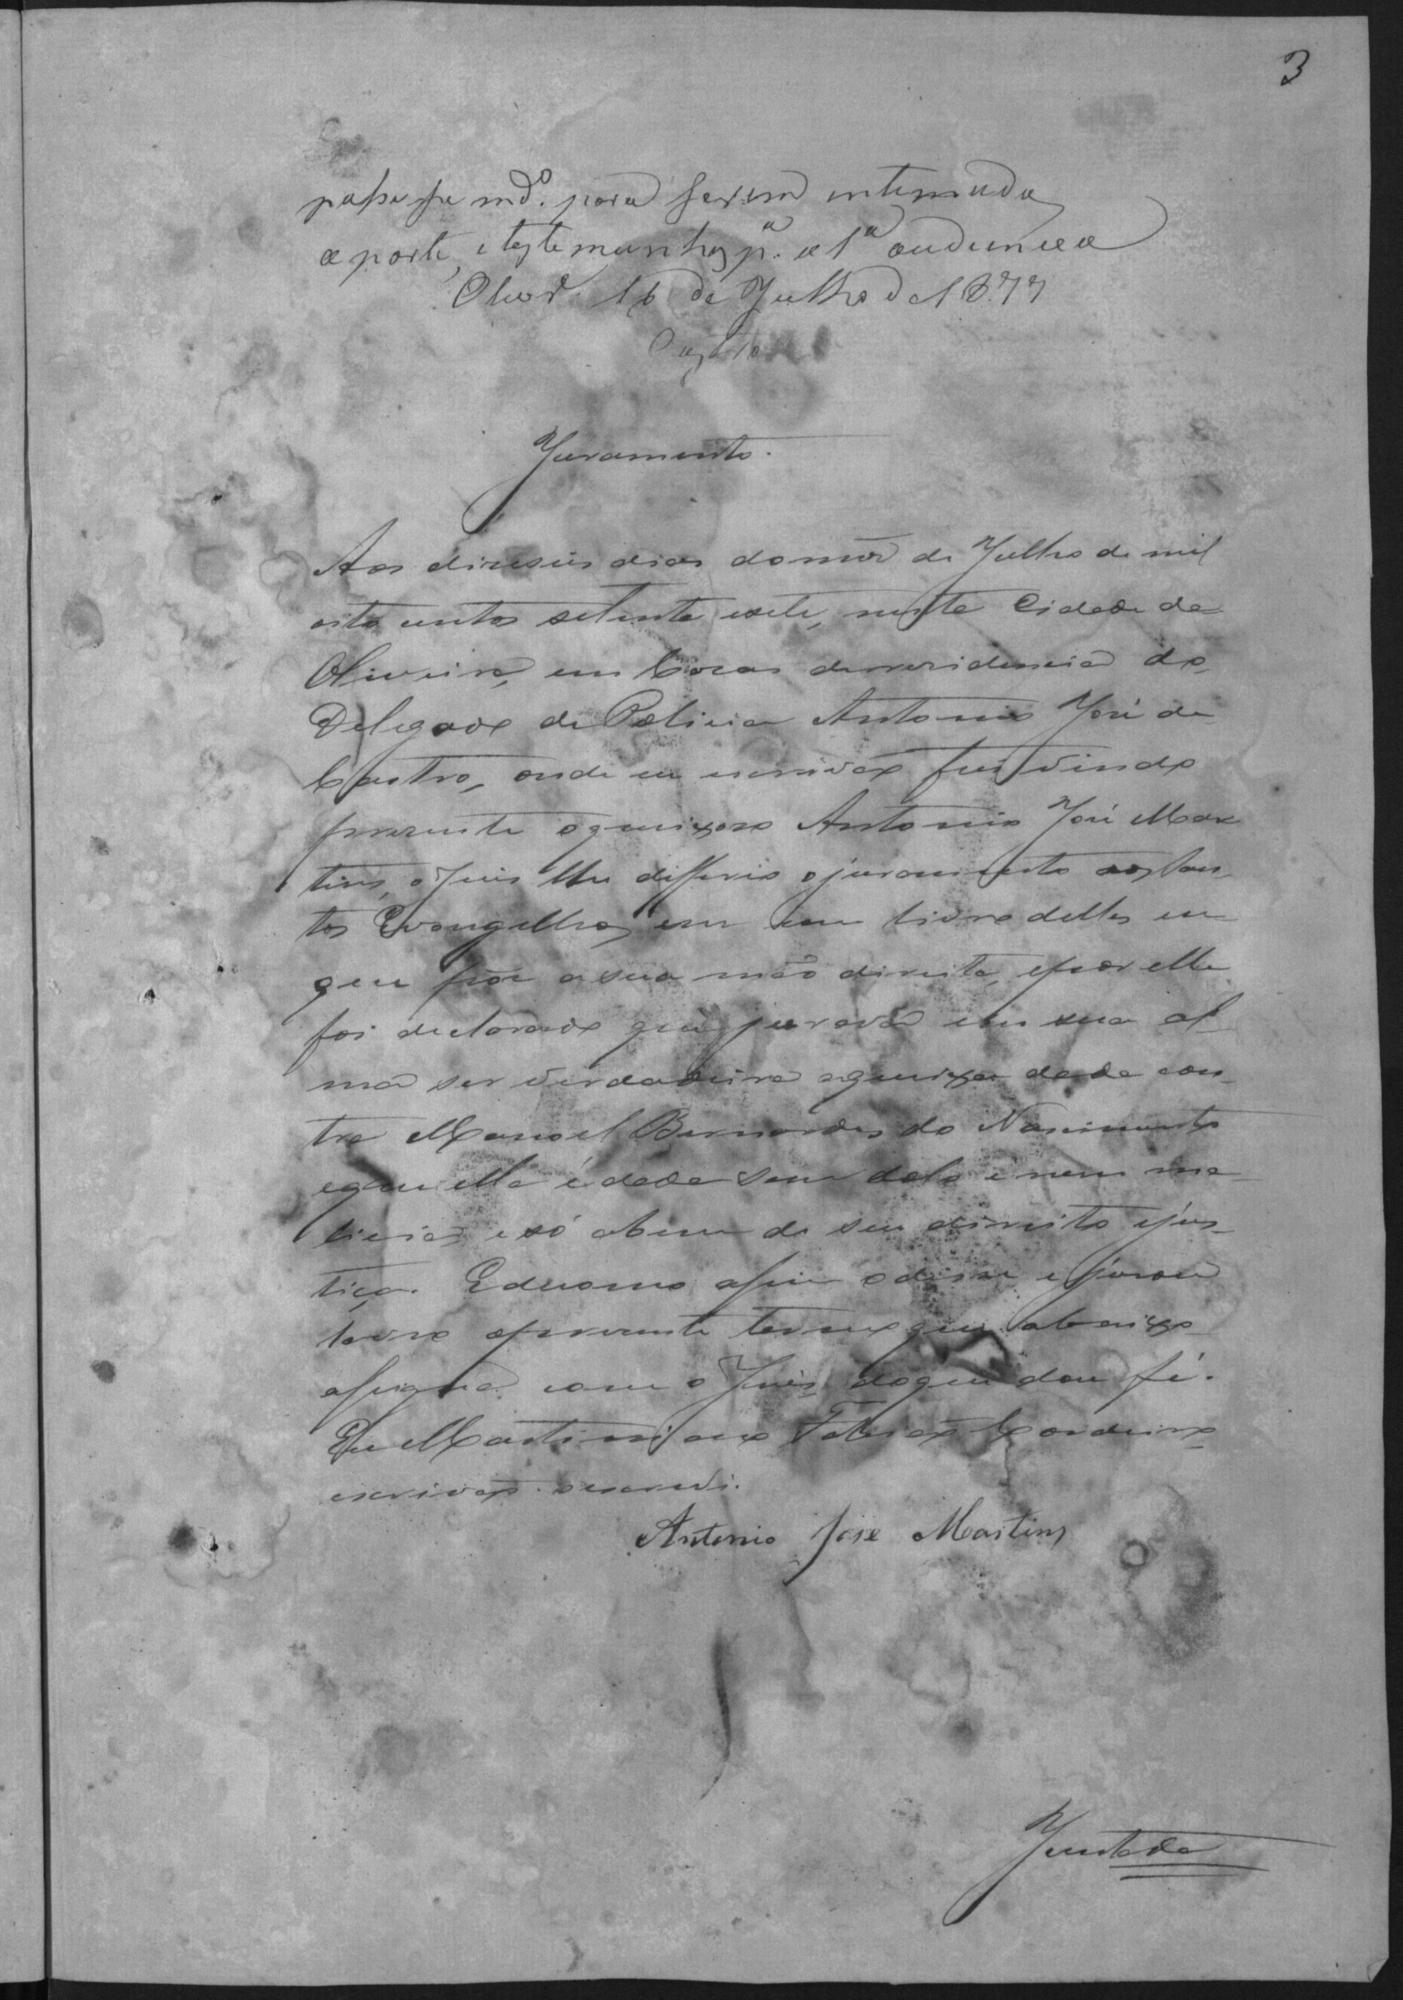 3
passe se md.º para serem intimada
a parte, e testemunhas p.ª a 1ª audiencia
Olivrª 16 de Julho de 1877
Castro
Juramento.
Aos diseseis dias do mez de Julho de mil
oito centos setenta e sete, nesta Cidade da
Oliveira, em Casas de residencia do
Delegado de Policia Antonio José de
Castro, onde eu escrivão fui vindo
presente o queixoso Antonio José Mar
tins, o Juis lhe differio o juramento aos San-
tos Evangelhos em um livro delles em
que pôz a sua mão direita, e por elle
foi declarado que jurava em sua al-
ma ser verdadeira a queixa dada con-
tra Manoel Bernardes do Nascimento
e que ella é dada sem dolo e nem ma-
licia, e só a bem de seu direito e jus-
tiça. E de como assim o disse e jurou
lavro o presente termo que abaixo
assigna com o Juis, do que dou fé.
Eu Martiniano Cordeiro
escrivão o escrevi.
Antonio Jose Martins
Juntada